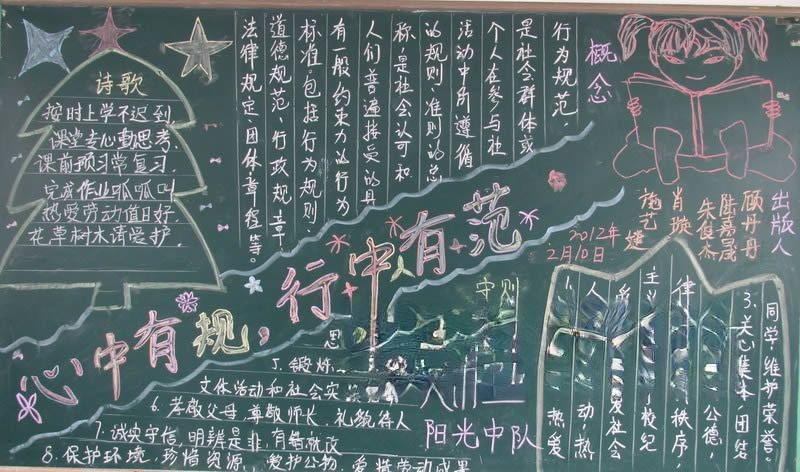 诗歌
按时上学不迟到.
课堂专心勤思考.
课前预习常复习.
完成作业呱呱叫
热爱劳动值日好
花草树木请爱护.
概念
行为规范.
是社会群体或
个人在参与社
活动中所遵循
的规则,准则的总
称,是社会认可和
人们普遍接受的具
有一般约束力的行为
标准.包括行为规则.
道德规范,行政规章.
法律规定.团体章程等。
心中有规,行中有范
出版人
顾丹丹
陆易晟
朱俊杰
肖璇
施艺婕
2012年
2月10日
守则
同学,维护荣誉。
3.关心集体,团结
公德,
律
秩序
主义
校纪
爱社会
人
动,热
1.
热爱
思
5.锻炼
文体活动和社会实
6.孝敬父母 尊敬师长.礼貌待人
7.诚实守信,明辨是非,有错就改
8.保护环境,珍惜资源,爱护公物,爱惜劳动成果
阳光中队